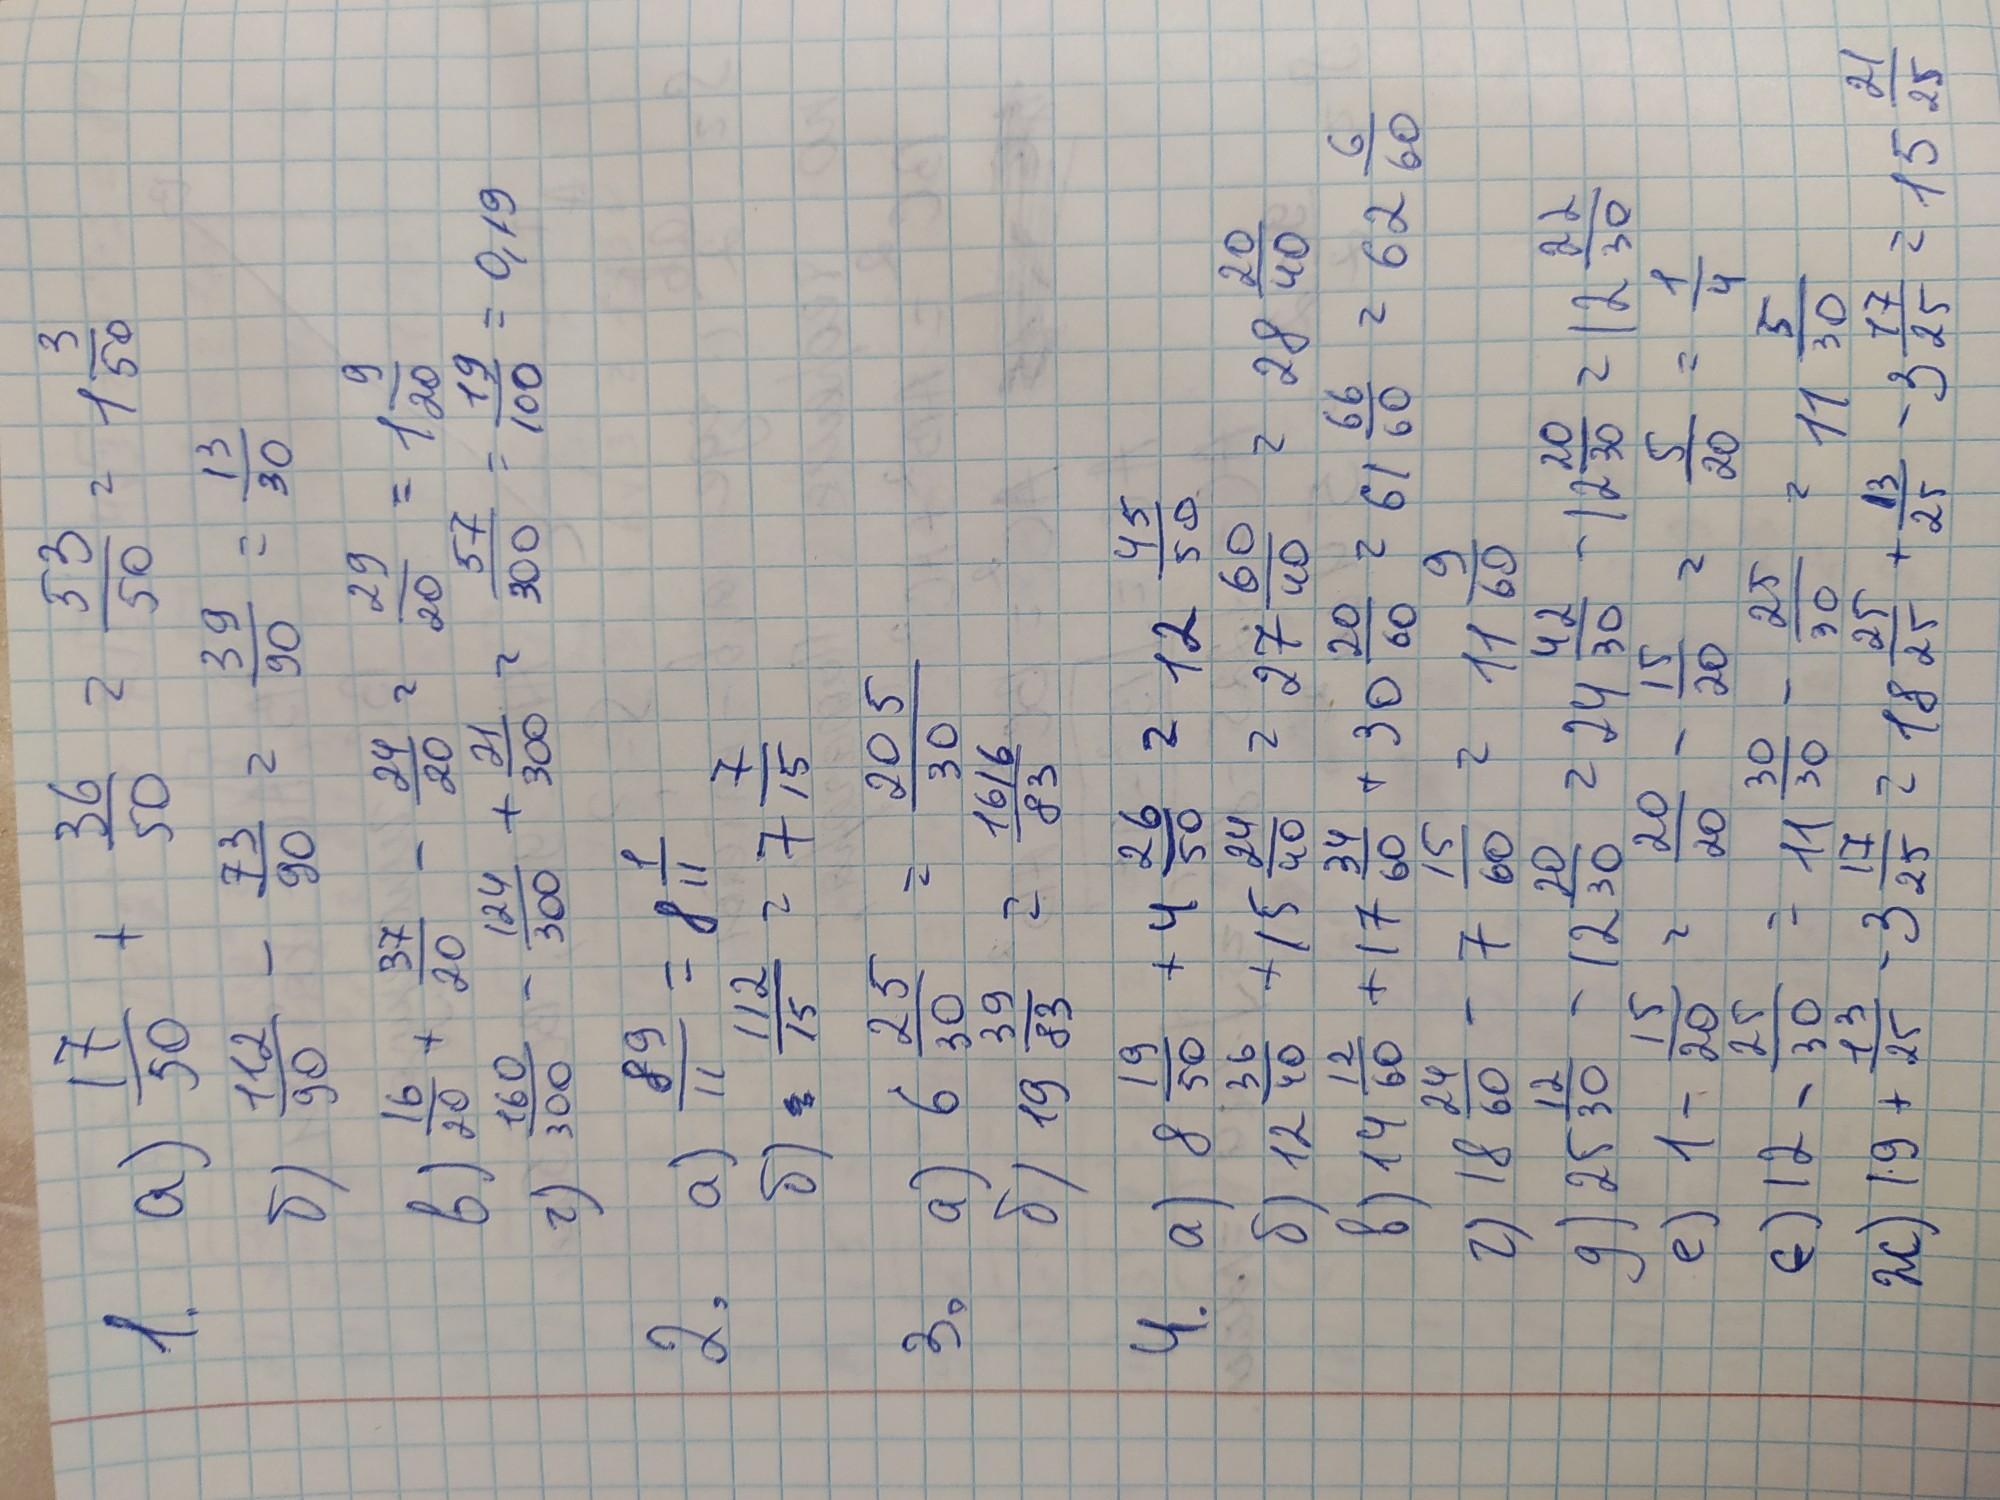 1. а) 17/50 + 36/50 = 53/50 = 1 3/50
б) 112/90 - 73/90 = 39/90 = 13/30
в) 16/20 + 37/20 - 24/20 = 29/20 = 1 9/20
г) 160/300 - 124/300 + 21/300 = 57/300 = 19/100 = 0,19
2. а) 89/11 = 8 1/11
б) 112/15 = 7 7/15
3. а) 6 25/30 = 205/30
б) 19 39/83 = 1616/83
4. а) 8 19/50 + 4 26/50 = 12 45/50
б) 12 36/40 + 15 24/40 = 27 60/40 = 28 20/40
в) 14 12/60 + 17 34/60 + 30 20/60 = 61 66/60 = 62 6/60
г) 18 24/60 - 7 15/60 = 11 9/60
д) 25 12/30 - 12 20/30 = 24 42/30 - 12 20/30 = 12 22/30
е) 1 - 15/20 = 20/20 - 15/20 = 5/20 = 1/4
є) 12 - 25/30 = 11 30/30 - 25/30 = 11 5/30
ж) 19 + 13/25 - 3 17/25 = 18 25/25 + 13/25 - 3 17/25 = 15 21/25